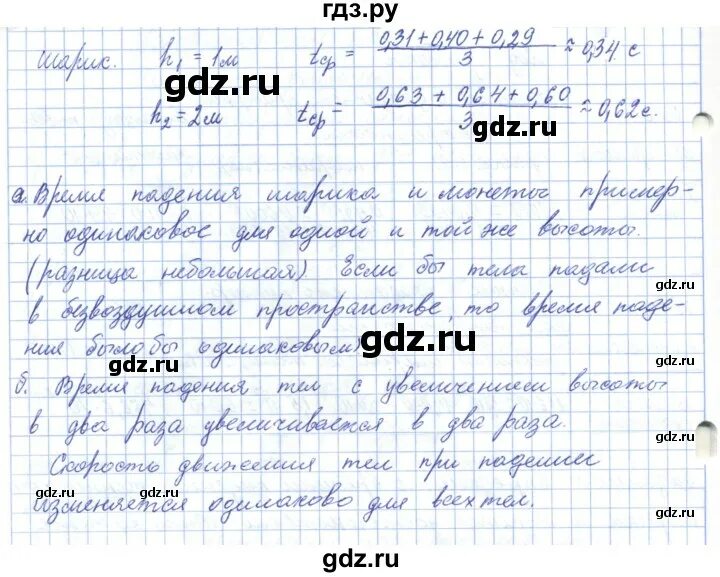 гдз.ру
шарик. h₁ = 1м tср = (0,31+0,40+0,29)/3 ≈ 0,34 с
gdz.ru
h₂ = 2м tср = (0,63 + 0,64 + 0,60)/3 ≈ 0,62 с.
gdz.ru
а. Время падения шарика и монеты пример-
но одинаковое для одной и той же высоты.
(разница небольшая) Если бы тела падали
gdz.ru
gdz.ru
в безвоздушном пространстве, то время паде-
gdz.ru
ния было бы одинаковым)
gdz.ru
б. Время падения тел с увеличением высоты
в два раза увеличивается в два раза.
gdz.ru
Скорость движения тел при падении
gdz.ru
gdz.ru
gdz.ru
изменяется одинаково для всех тел.
gdz.ru